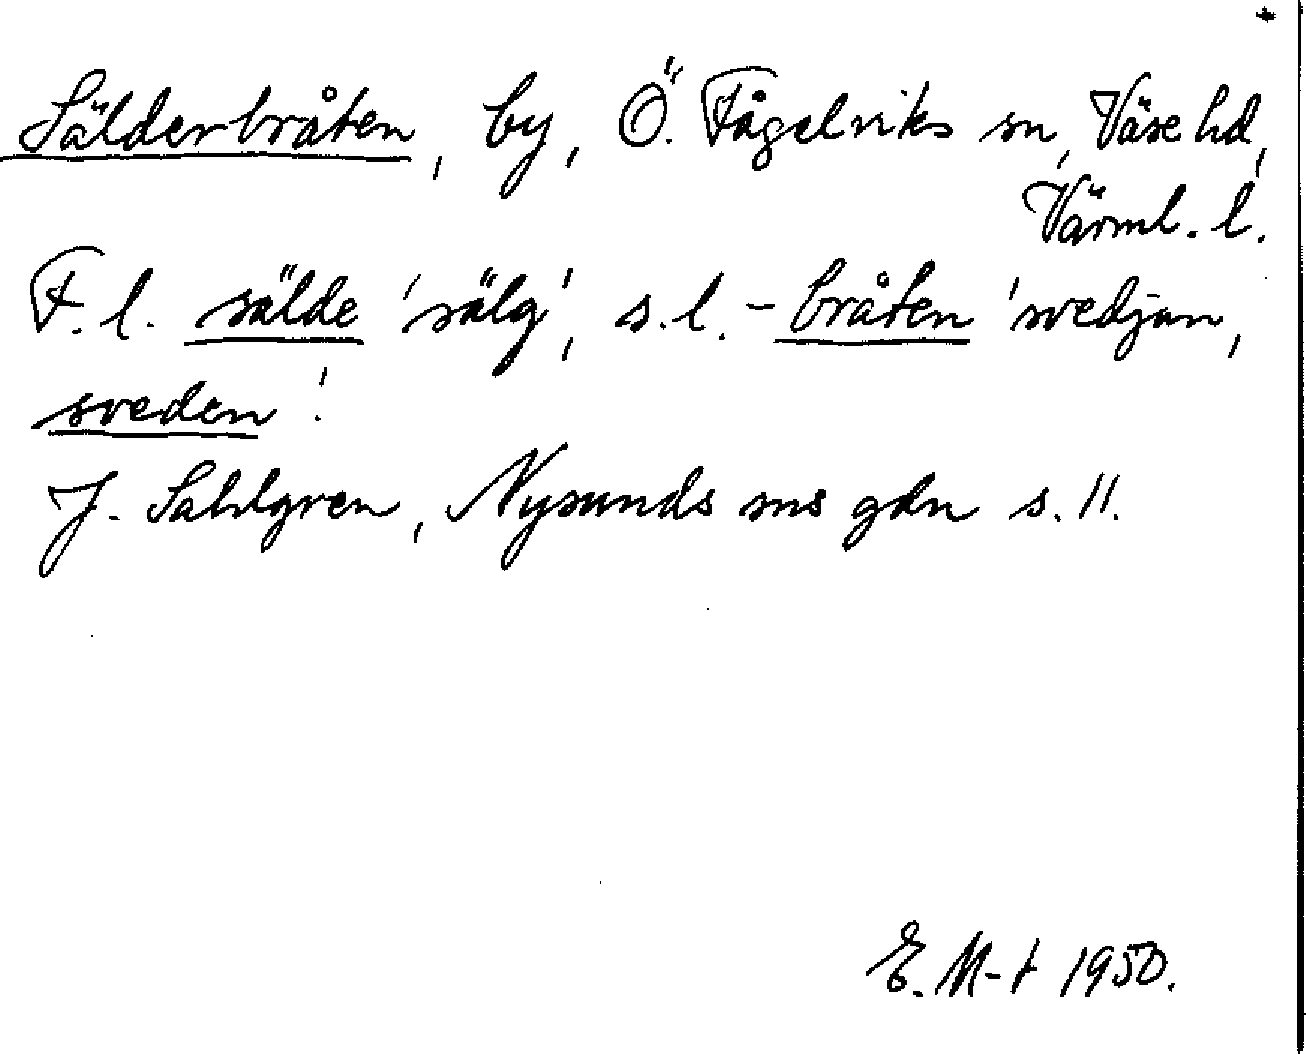 Sälderbråten, by, Ö. Fågelviks sn, Väse hd,
Värml. l.
F. l. sälde 'sälg', s. l. -bråten 'svedjan,
sveden'.
J. Sahlgren, Nysunds sns gdn s. 11.
E. M-t 1950.